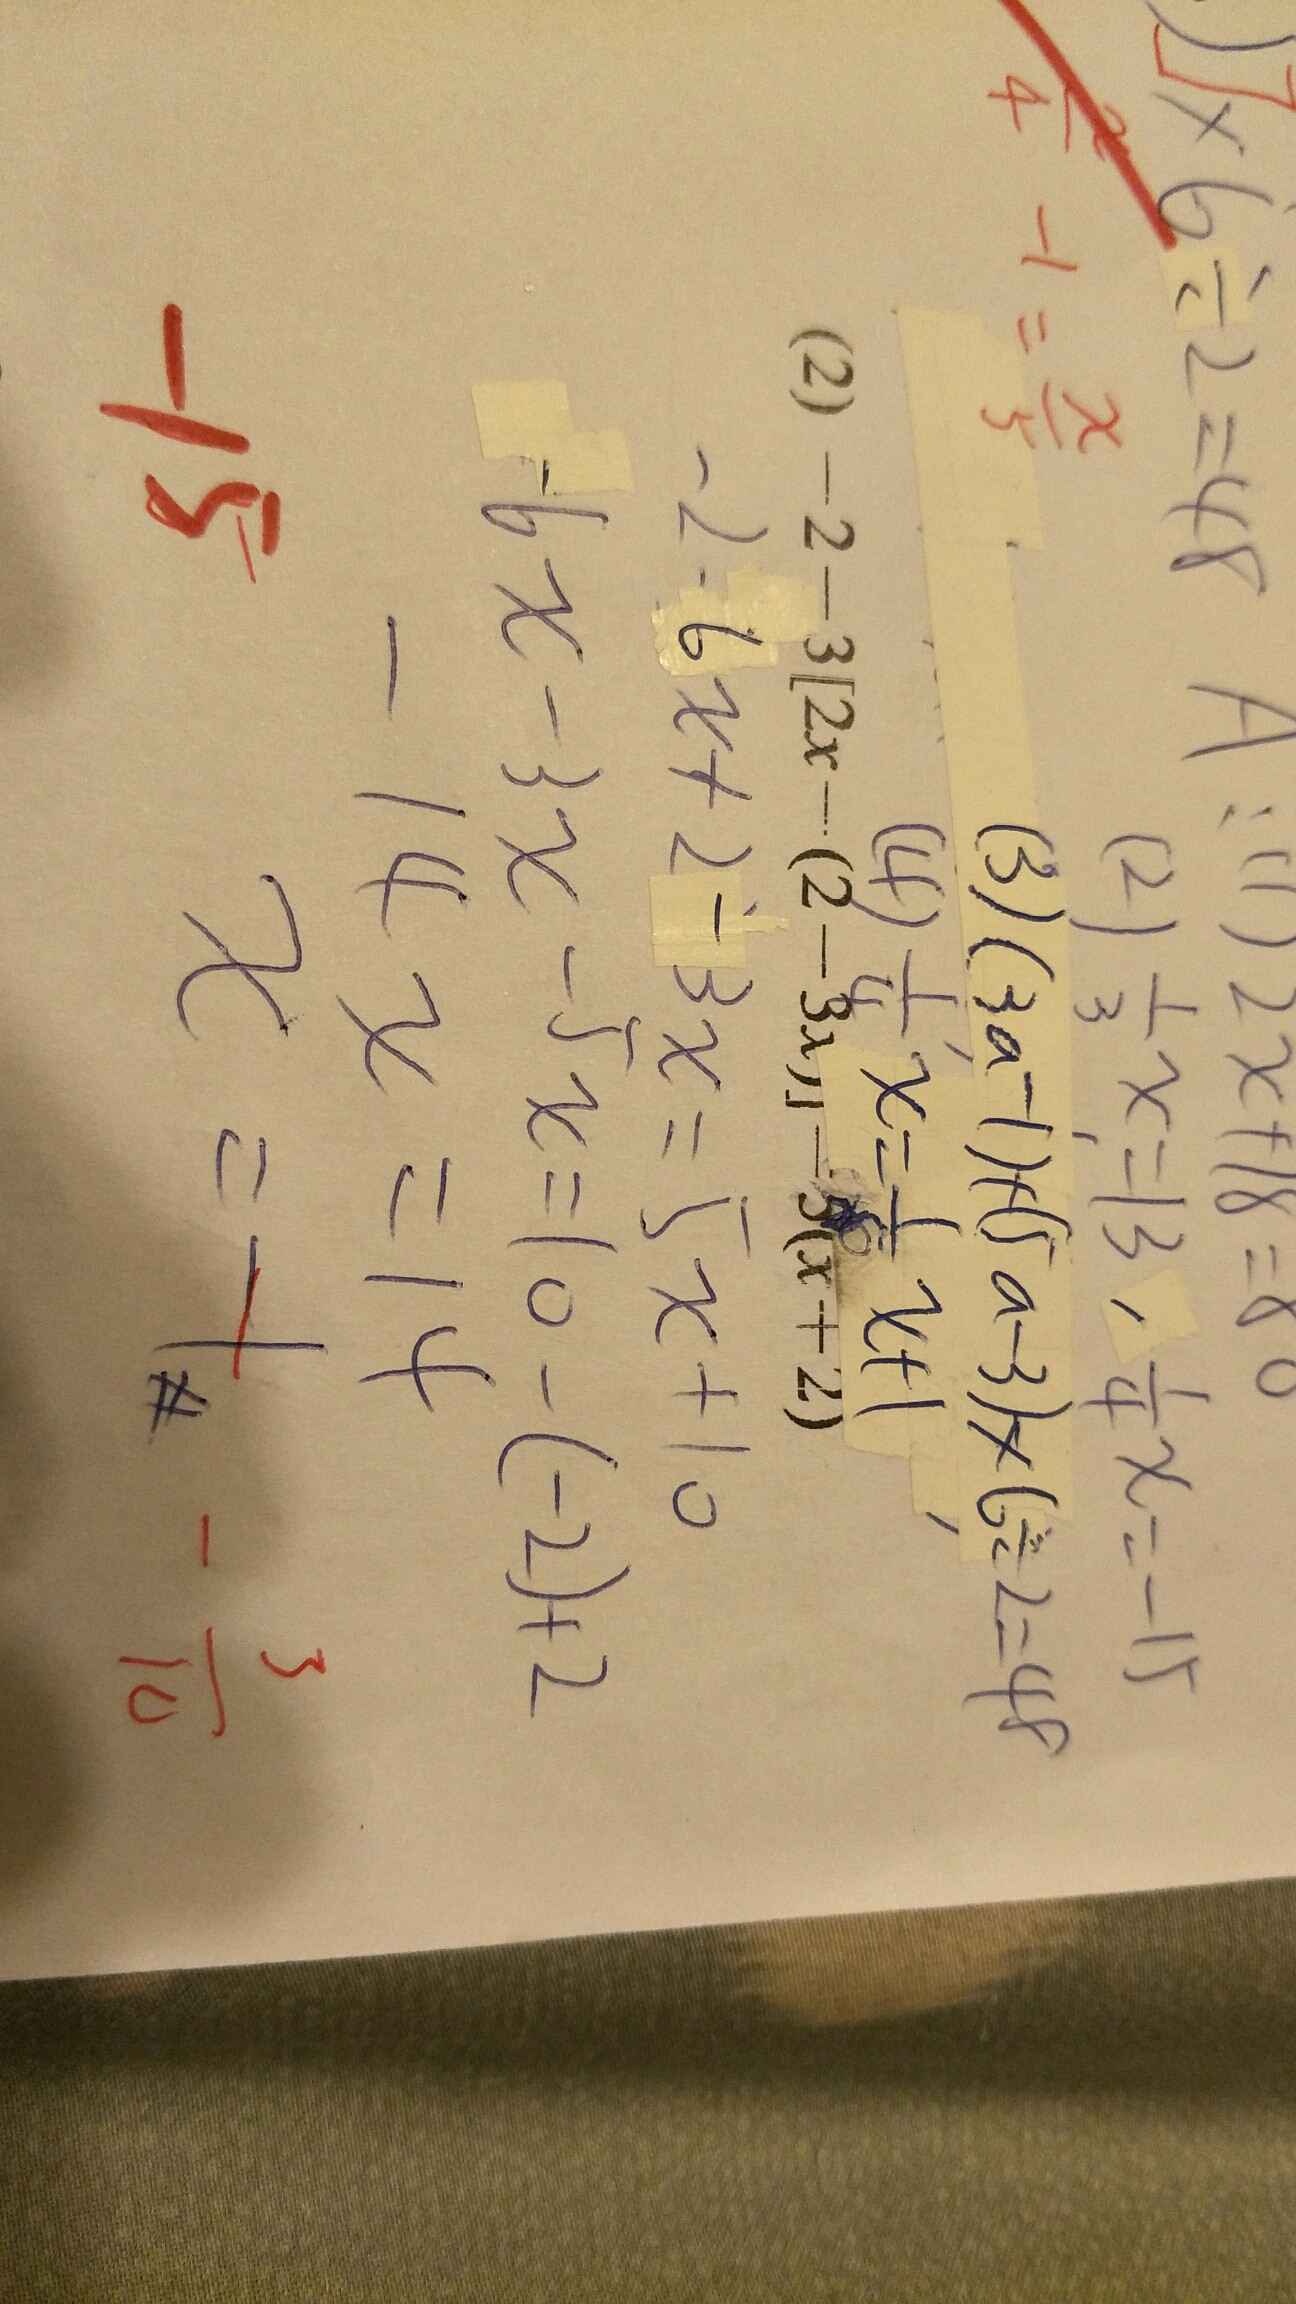 )] × 6 ÷ 2 = 48 A:(1) 2x+18=80
(2) 1/3 x = 13, 1/4 x = -15
x/4 - 1 = x/5
(3) (3a-1)+(5a-3)×6÷2=48
(4) 1/4 x = 1/5 x + 1
(2) −2−3[2x−(2−3x)]=5(x+2)
-2-6x+2-3x=5x+10
-6x-3x-5x=10-(-2)+2
-14x=14
x = -1 #
-15
- 3/10